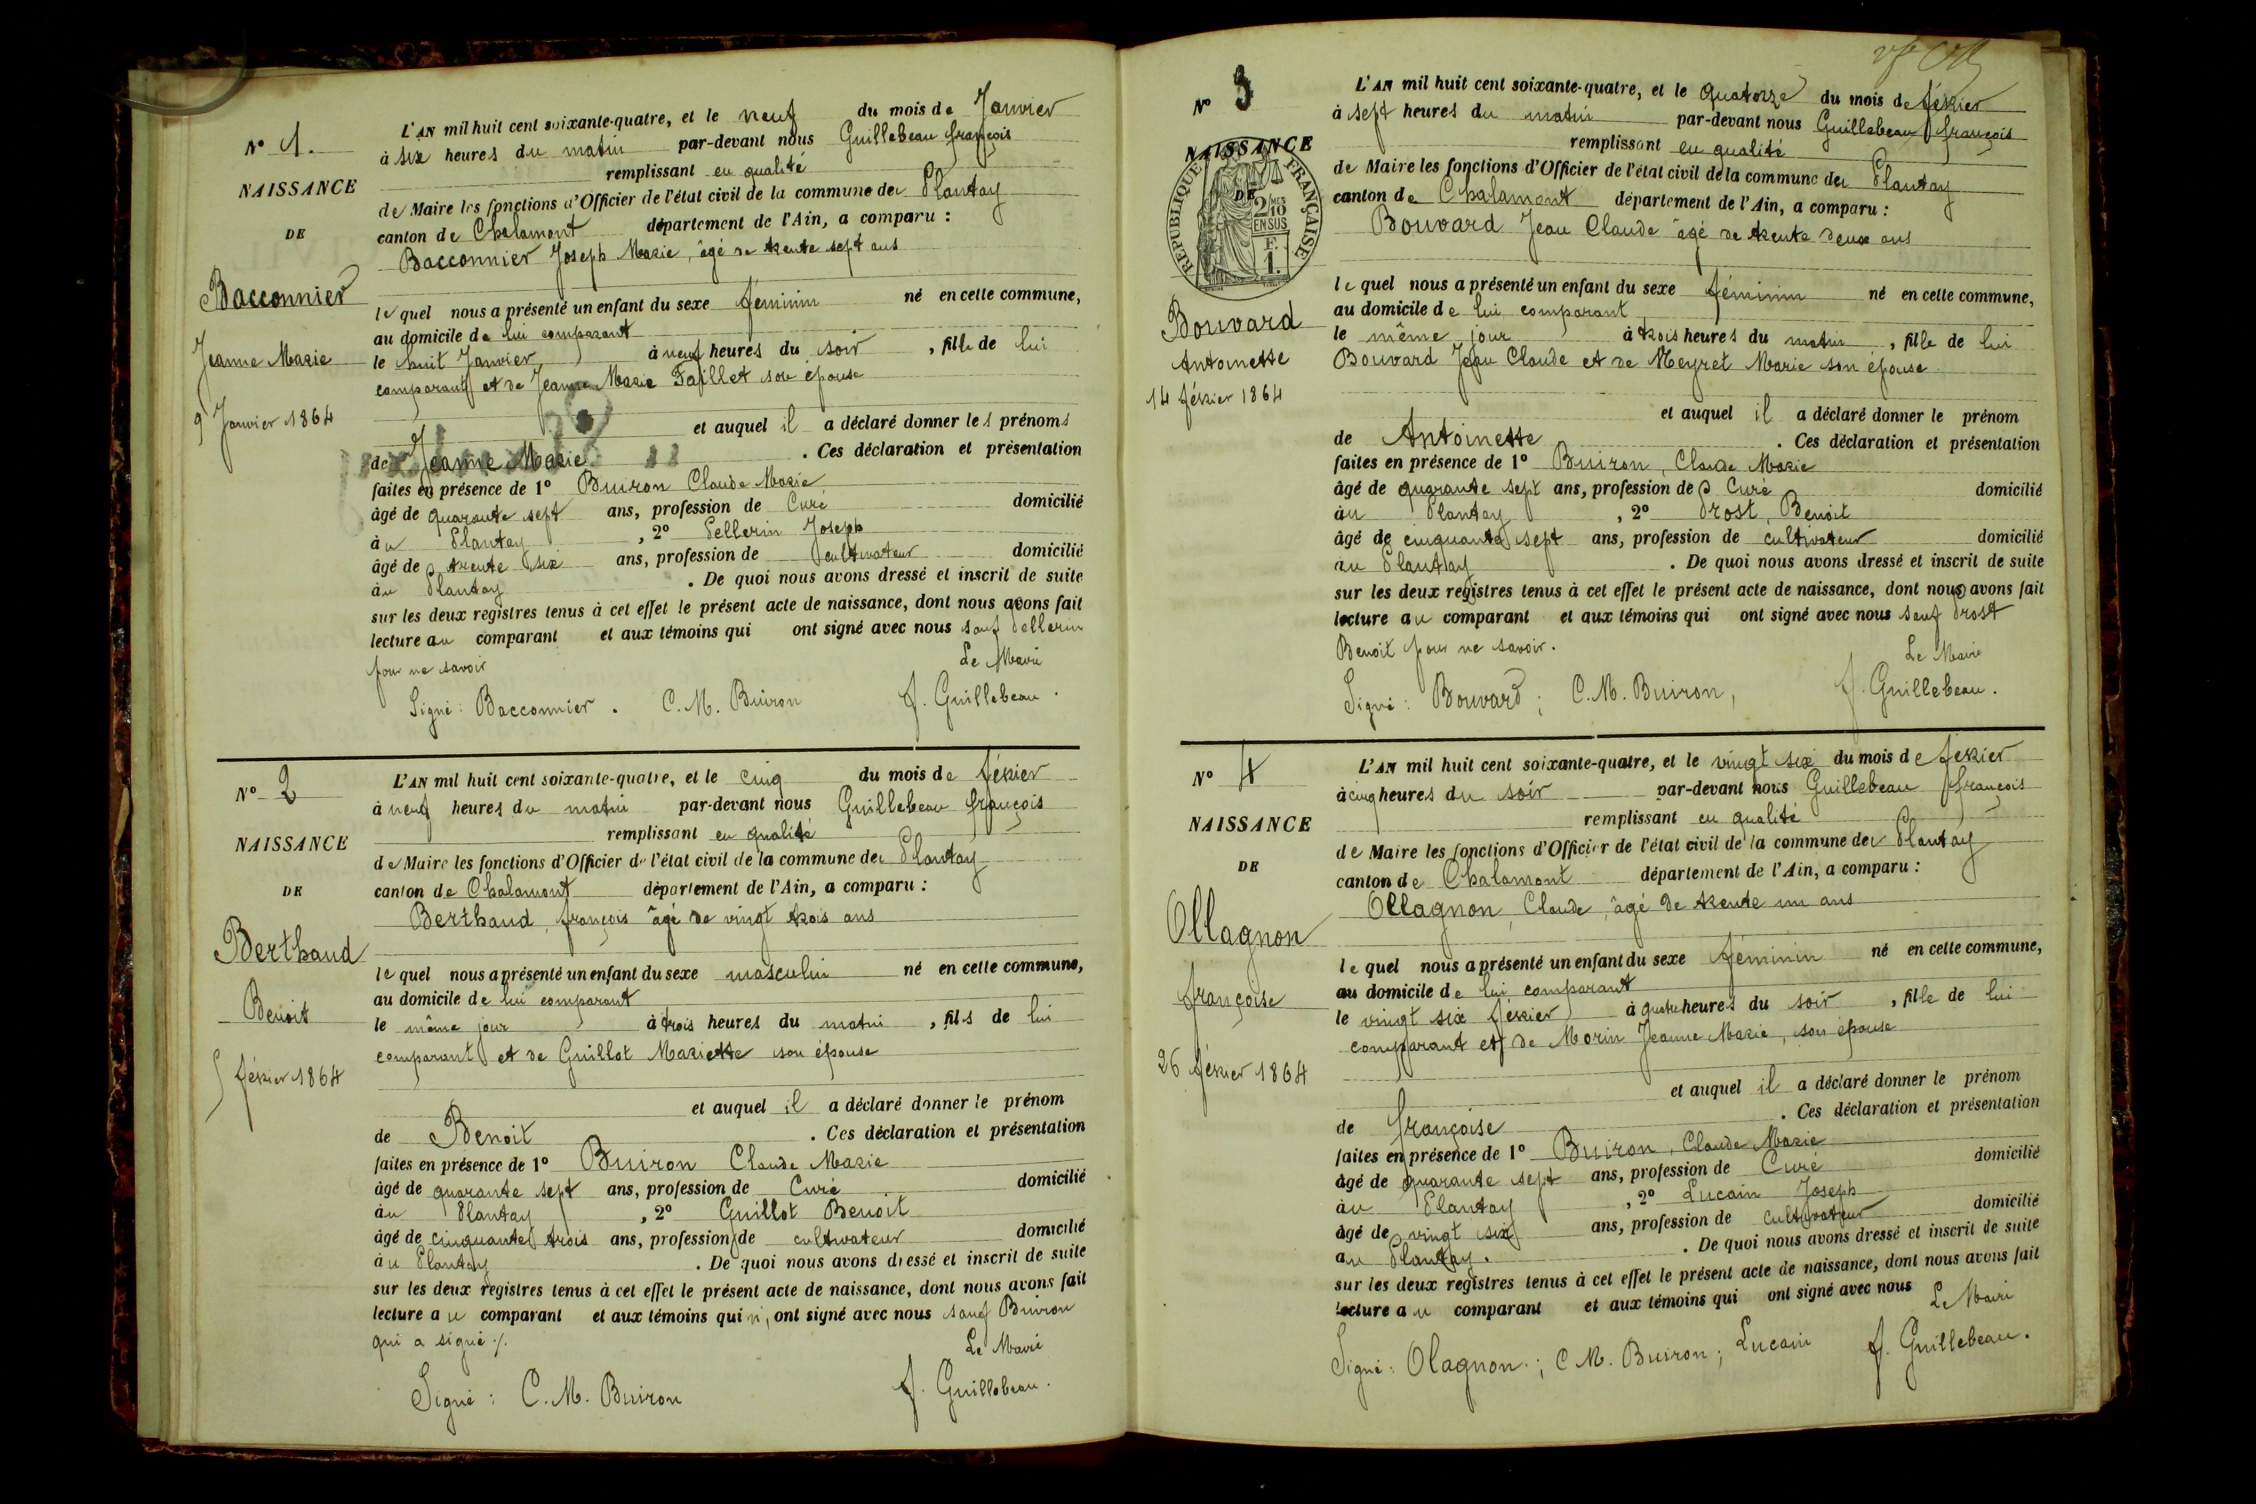 N° 1.
NAISSANCE
DE
Bacconnier
Jeanne Marie
9 Janvier 1864
L'AN mil huit cent soixante-quatre, et le neuf du mois de Janvier
à six heures du matin par-devant nous Guillebeau françois
remplissant en qualité
de Maire les fonctions d'Officier de l'état civil de la commune du Plantay
canton de Chalamont département de l'Ain, a comparu :
Bacconnier Joseph Marie, âgé de trente sept ans
lequel nous a présenté un enfant du sexe féminin né en cette commune,
au domicile de lui comparant
le huit Janvier à neuf heures du soir, fille de lui
comparant et de Jeanne Marie Paillet son épouse
et auquel il a déclaré donner les prénoms
de Jeanne Marie. Ces déclaration et présentation
faites en présence de 1° Buiron Claude Marie
âgé de quarante sept ans, profession de Curé domicilié
au Plantay, 2° Pellerin Joseph
âgé de trente six ans, profession de cultivateur domicilié
au Plantay. De quoi nous avons dressé et inscrit de suite
sur les deux registres tenus à cet effet le présent acte de naissance, dont nous avons fait
lecture au comparant et aux témoins qui ont signé avec nous sauf Pellerin
pour ne savoir
Le Maire
Signé : Bacconnier. C. M. Buiron f. Guillebeau.
N° 2
NAISSANCE
DE
Berthaud
Benoit
5 février 1864
L'AN mil huit cent soixante-quatre, et le cinq du mois de février
à neuf heures du matin par-devant nous Guillebeau françois
remplissant en qualité
de Maire les fonctions d'Officier de l'état civil de la commune du Plantay
canton de Chalamont département de l'Ain, a comparu :
Berthaud, françois âgé de vingt trois ans
lequel nous a présenté un enfant du sexe masculin né en cette commune,
au domicile de lui comparant
le même jour à trois heures du matin, fils de lui
comparant et de Guillot Mariette son épouse
et auquel il a déclaré donner le prénom
de Benoit. Ces déclaration et présentation
faites en présence de 1° Buiron Claude Marie
âgé de quarante sept ans, profession de Curé domicilié
au Plantay, 2° Guillot Benoit
âgé de cinquante trois ans, profession de cultivateur domicilié
au Plantay. De quoi nous avons dressé et inscrit de suite
sur les deux registres tenus à cet effet le présent acte de naissance, dont nous avons fait
lecture au comparant et aux témoins qui n', ont signé avec nous sauf Buiron
qui a signé ./.
Le Maire
Signé : C. M. Buiron f. Guillebeau.
N° 3
NAISSANCE
DE
RÉPUBLIQUE FRANÇAISE
2/10
EN SUS
F.
1.
Bouvard
Antoinette
14 février 1864
L'AN mil huit cent soixante-quatre, et le quatorze du mois de février
à sept heures du matin par-devant nous Guillebeau françois
remplissant en qualité
de Maire les fonctions d'Officier de l'état civil de la commune du Plantay
canton de Chalamont département de l'Ain, a comparu :
Bouvard Jean Claude âgé de trente deux ans
lequel nous a présenté un enfant du sexe féminin né en cette commune,
au domicile de lui comparant
le même jour à trois heures du matin, fille de lui
Bouvard Jean Claude et de Meyret Marie son épouse
et auquel il a déclaré donner le prénom
de Antoinette. Ces déclaration et présentation
faites en présence de 1° Buiron, Claude Marie
âgé de quarante sept ans, profession de Curé domicilié
au Plantay, 2° Prost, Benoit
âgé de cinquante sept ans, profession de cultivateur domicilié
au Plantay. De quoi nous avons dressé et inscrit de suite
sur les deux registres tenus à cet effet le présent acte de naissance, dont nous avons fait
lecture au comparant et aux témoins qui ont signé avec nous sauf Prost
Benoit pour ne savoir.
Le Maire
Signé : Bouvard ; C. M. Buiron, f. Guillebeau.
N° 4
NAISSANCE
DE
Ollagnon
françoise
26 février 1864
L'AN mil huit cent soixante-quatre, et le vingt six du mois de février
à cinq heures du soir par-devant nous Guillebeau françois
remplissant en qualité
de Maire les fonctions d'Officier de l'état civil de la commune du Plantay
canton de Chalamont département de l'Ain, a comparu :
Ollagnon, Claude, âgé de trente un ans
lequel nous a présenté un enfant du sexe féminin né en cette commune,
au domicile de lui comparant
le vingt six février à quatre heures du soir, fille de lui
comparant et de Morin Jeanne Marie, son épouse
et auquel il a déclaré donner le prénom
de françoise. Ces déclaration et présentation
faites en présence de 1° Buiron, Claude Marie
âgé de quarante sept ans, profession de Curé domicilié
au Plantay, 2° Lucain Joseph
âgé de vingt six ans, profession de cultivateur domicilié
au Plantay. De quoi nous avons dressé et inscrit de suite
sur les deux registres tenus à cet effet le présent acte de naissance, dont nous avons fait
lecture au comparant et aux témoins qui ont signé avec nous
Le Maire
Signé : Olagnon ; C. M. Buiron ; Lucain f. Guillebeau.